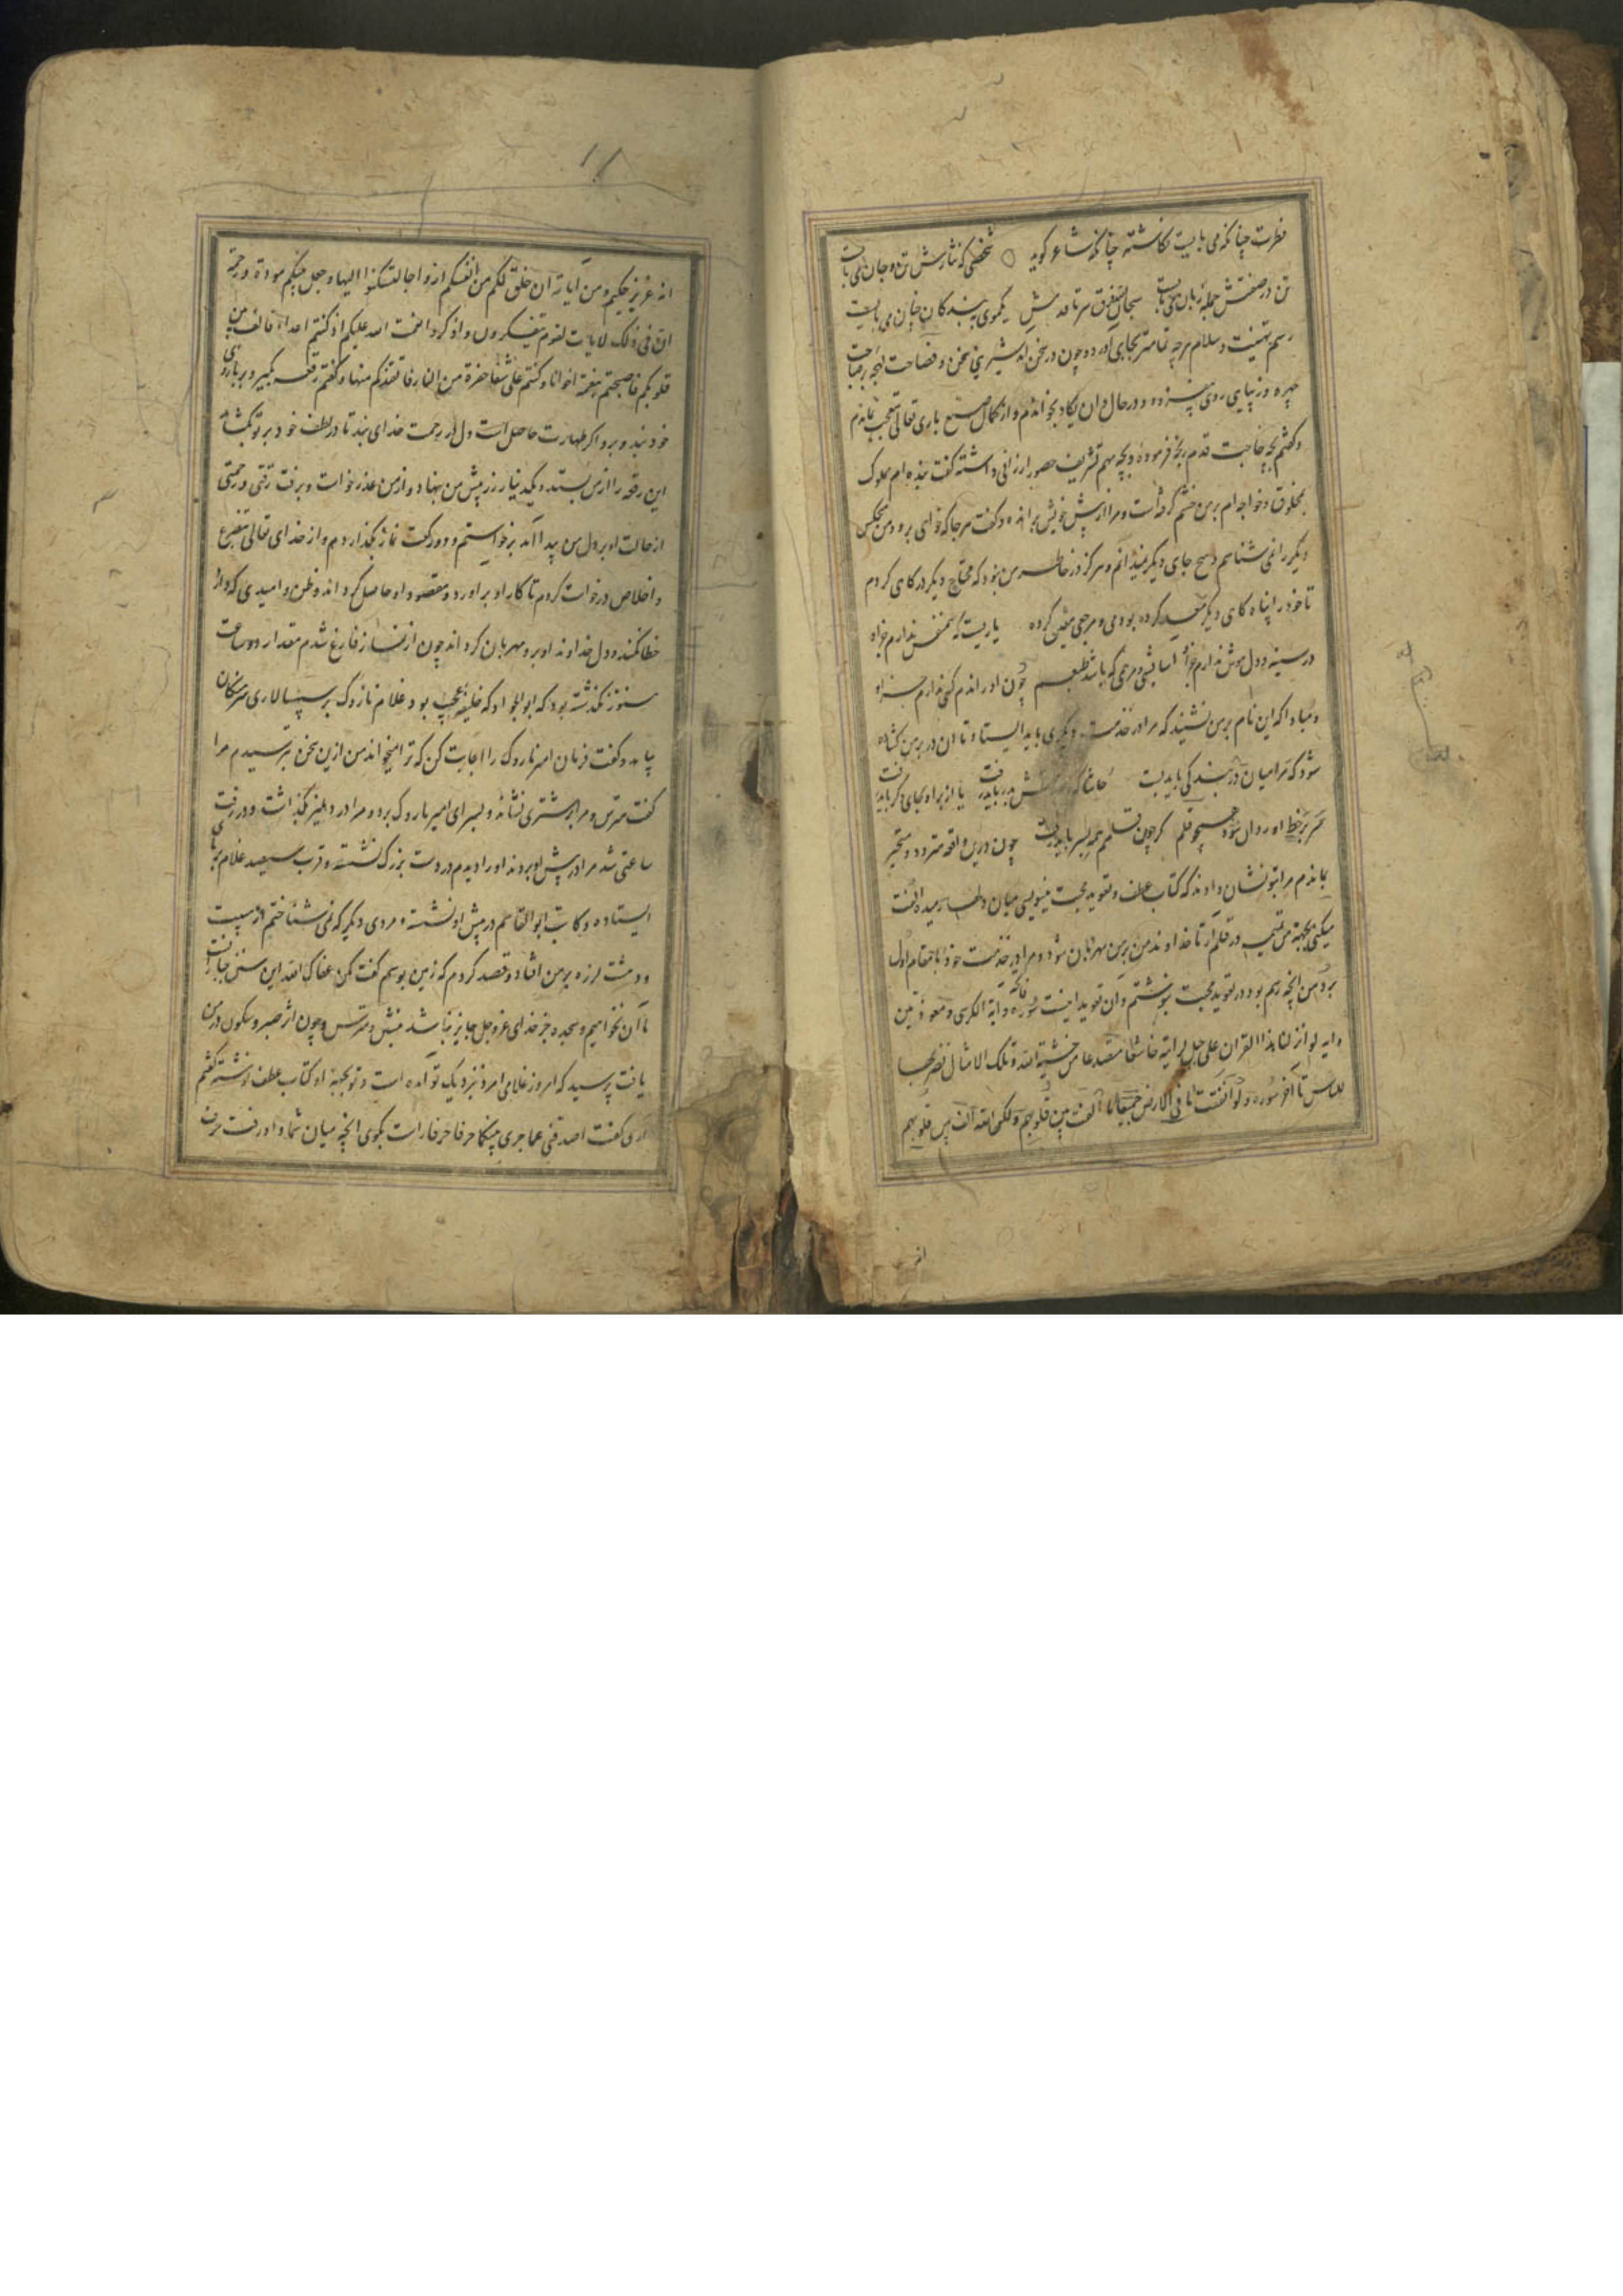 فطرت چنانکه می بایست نکاشته چنانکه شاعر کوید شخصی که نثارش تن و جان می بایست
تن در صفتش جمله زبان می بایست سبحان الله ز فرق سر تا قدمش یکموی نبد کان چنان می بایست
رسم تهنیت و سلام هرچه تمامتر بجای آورد و چون در سخن آمد شیرینی سخن و فصاحت لهجه بر صباحت
چهره و زیبایی روی بیفزود در حال وان یکاد بخواندم و از کمال صنع باری تعالی متعجب بماندم
و کفتم بچه حاجت قدم رنجه فرموده و بچه مهم تشریف حضور ارزانی داشته کفت بنده ام مملوک
مخلوق و خواجه ام بر من خشم کرفته است و مرا از پیش خویش برانده و کفت هرجا که خواهی برو و من هیچکس
دیکر را نمی شناسم و هیچ جای دیکر نمیدانم و هرکز در خاطر من نبود که محتاج دیکر در کاهی کردم
تا خود را پناه کاهی دیکر کرده بودمی و مرجعی معین کرده یاریست که همنفس ندارم جز او
در سینه و دل هوش ندارم جز او آسایش و مرهمی که باشد طبعم چون او راندم کسی ندارم جز او
و مبادا که این نام بر من نشیند که مرا در خدمت دیکری باید ایستاد تا آن در بر من کشاده
شود که مرا میان در بندکی باید بست حاشا که ز خدمتش بدر باید رفت یا از بر او بجای دکر باید رفت
سر بر خط او روان شود همچو قلم کر چون قلمم همه بسر باید رفت چون درین واقعه متردد و متحیر
بماندم مرا بتو نشان دادند که کتاب عطف و تعوید محبت مینویسی میان و
میکنی بجهت من در قلم آر تا خداوند من بر من مهربان شود و مرا در خدمت خود با مقام اول
برد من آنچه رسم بود در تعوید محبت بنوشتم و آن تعوید اینست سوره فاتحه و آیة الکرسی و معوذتین
و آیه لو انزلنا هذا القران علی جبل لرایته خاشعا متصدعا من خشیة الله و تلک الامثال نضربها
للناس تا آخر سوره و لو انفقت ما فی الارض جمیعا ما الفت بین قلوبهم و لکن الله الف بین قلوبهم
انه
انه عزیز حکیم و من آیاته ان خلق لکم من انفسکم ازواجا لتسکنوا الیها و جعل بینکم مودة و رحمة
ان فی ذلک لایات لقوم یتفکرون و اذکروا نعمت الله علیکم اذ کنتم اعداء فالف بین
قلوبکم فاصبحتم بنعمته اخوانا و کنتم علی شفا حفرة من النار فانقذکم منها و کفتم رقعه بکیر و بر بازوی
خود بند و برو اکر طهارت حاصل است و دل در رحمت خدای بند تا در لطف خود بر تو بکشاید
این رقعه را از من بستد و یکدینار زر پیش من بنهاد و از من عذر خواست و برفت رقتی و رحمتی
از حالت او بر دل من پیدا آمد برخواستم و دو رکعت نماز بکذاردم و از خدای تعالی بتضرع
و اخلاص درخواست کردم تا کار او برآورد و مقصود او حاصل کرداند و ظن و امیدی که دارد
خطا نکند و دل خداوند او برو مهربان کرداند چون از نماز فارغ شدم مقدار دو ساعت
هنوز نکذشته بود که ابو الجواد که خلیفه عجیب بود غلام نازوک بر سپهسالاری سرهنکان
بیامد و کفت فرمان امیر نازوک را اجابت کن که ترا میخواند من ازین سخن بترسیدم مرا
کفت مترس و مرا بر استری نشاند و بسرای امیر نازوک برد و مرا در دهلیز بکذاشت و در رفت
ساعتی شد مرا در پیش او بردند او را دیدم در دست بزرک نشسته و قرب سیصد غلام بر پای
ایستاده و کاتب ابو القاسم در پیش او نشسته و مردی دیکر که نمی شناختم از هیبت
و دهشت لرزه بر من افتاد و قصد کردم که زمین بوسم کفت مکن عفاک الله این سنن جبارانست
ما آن نخواهیم و سجده جز خدای عز و جل جایز نباشد بنشین و مترس و چون اثر صبر و سکون در من
یافت پرسید که امروز غلامی امرد نزدیک تو آمده است و تو بجهة او کتاب عطف نوشته کفتم
آری کفت اصدقنی عما جری بینکما حرفا حرفا راست بکوی آنچه میان شما و او رفت